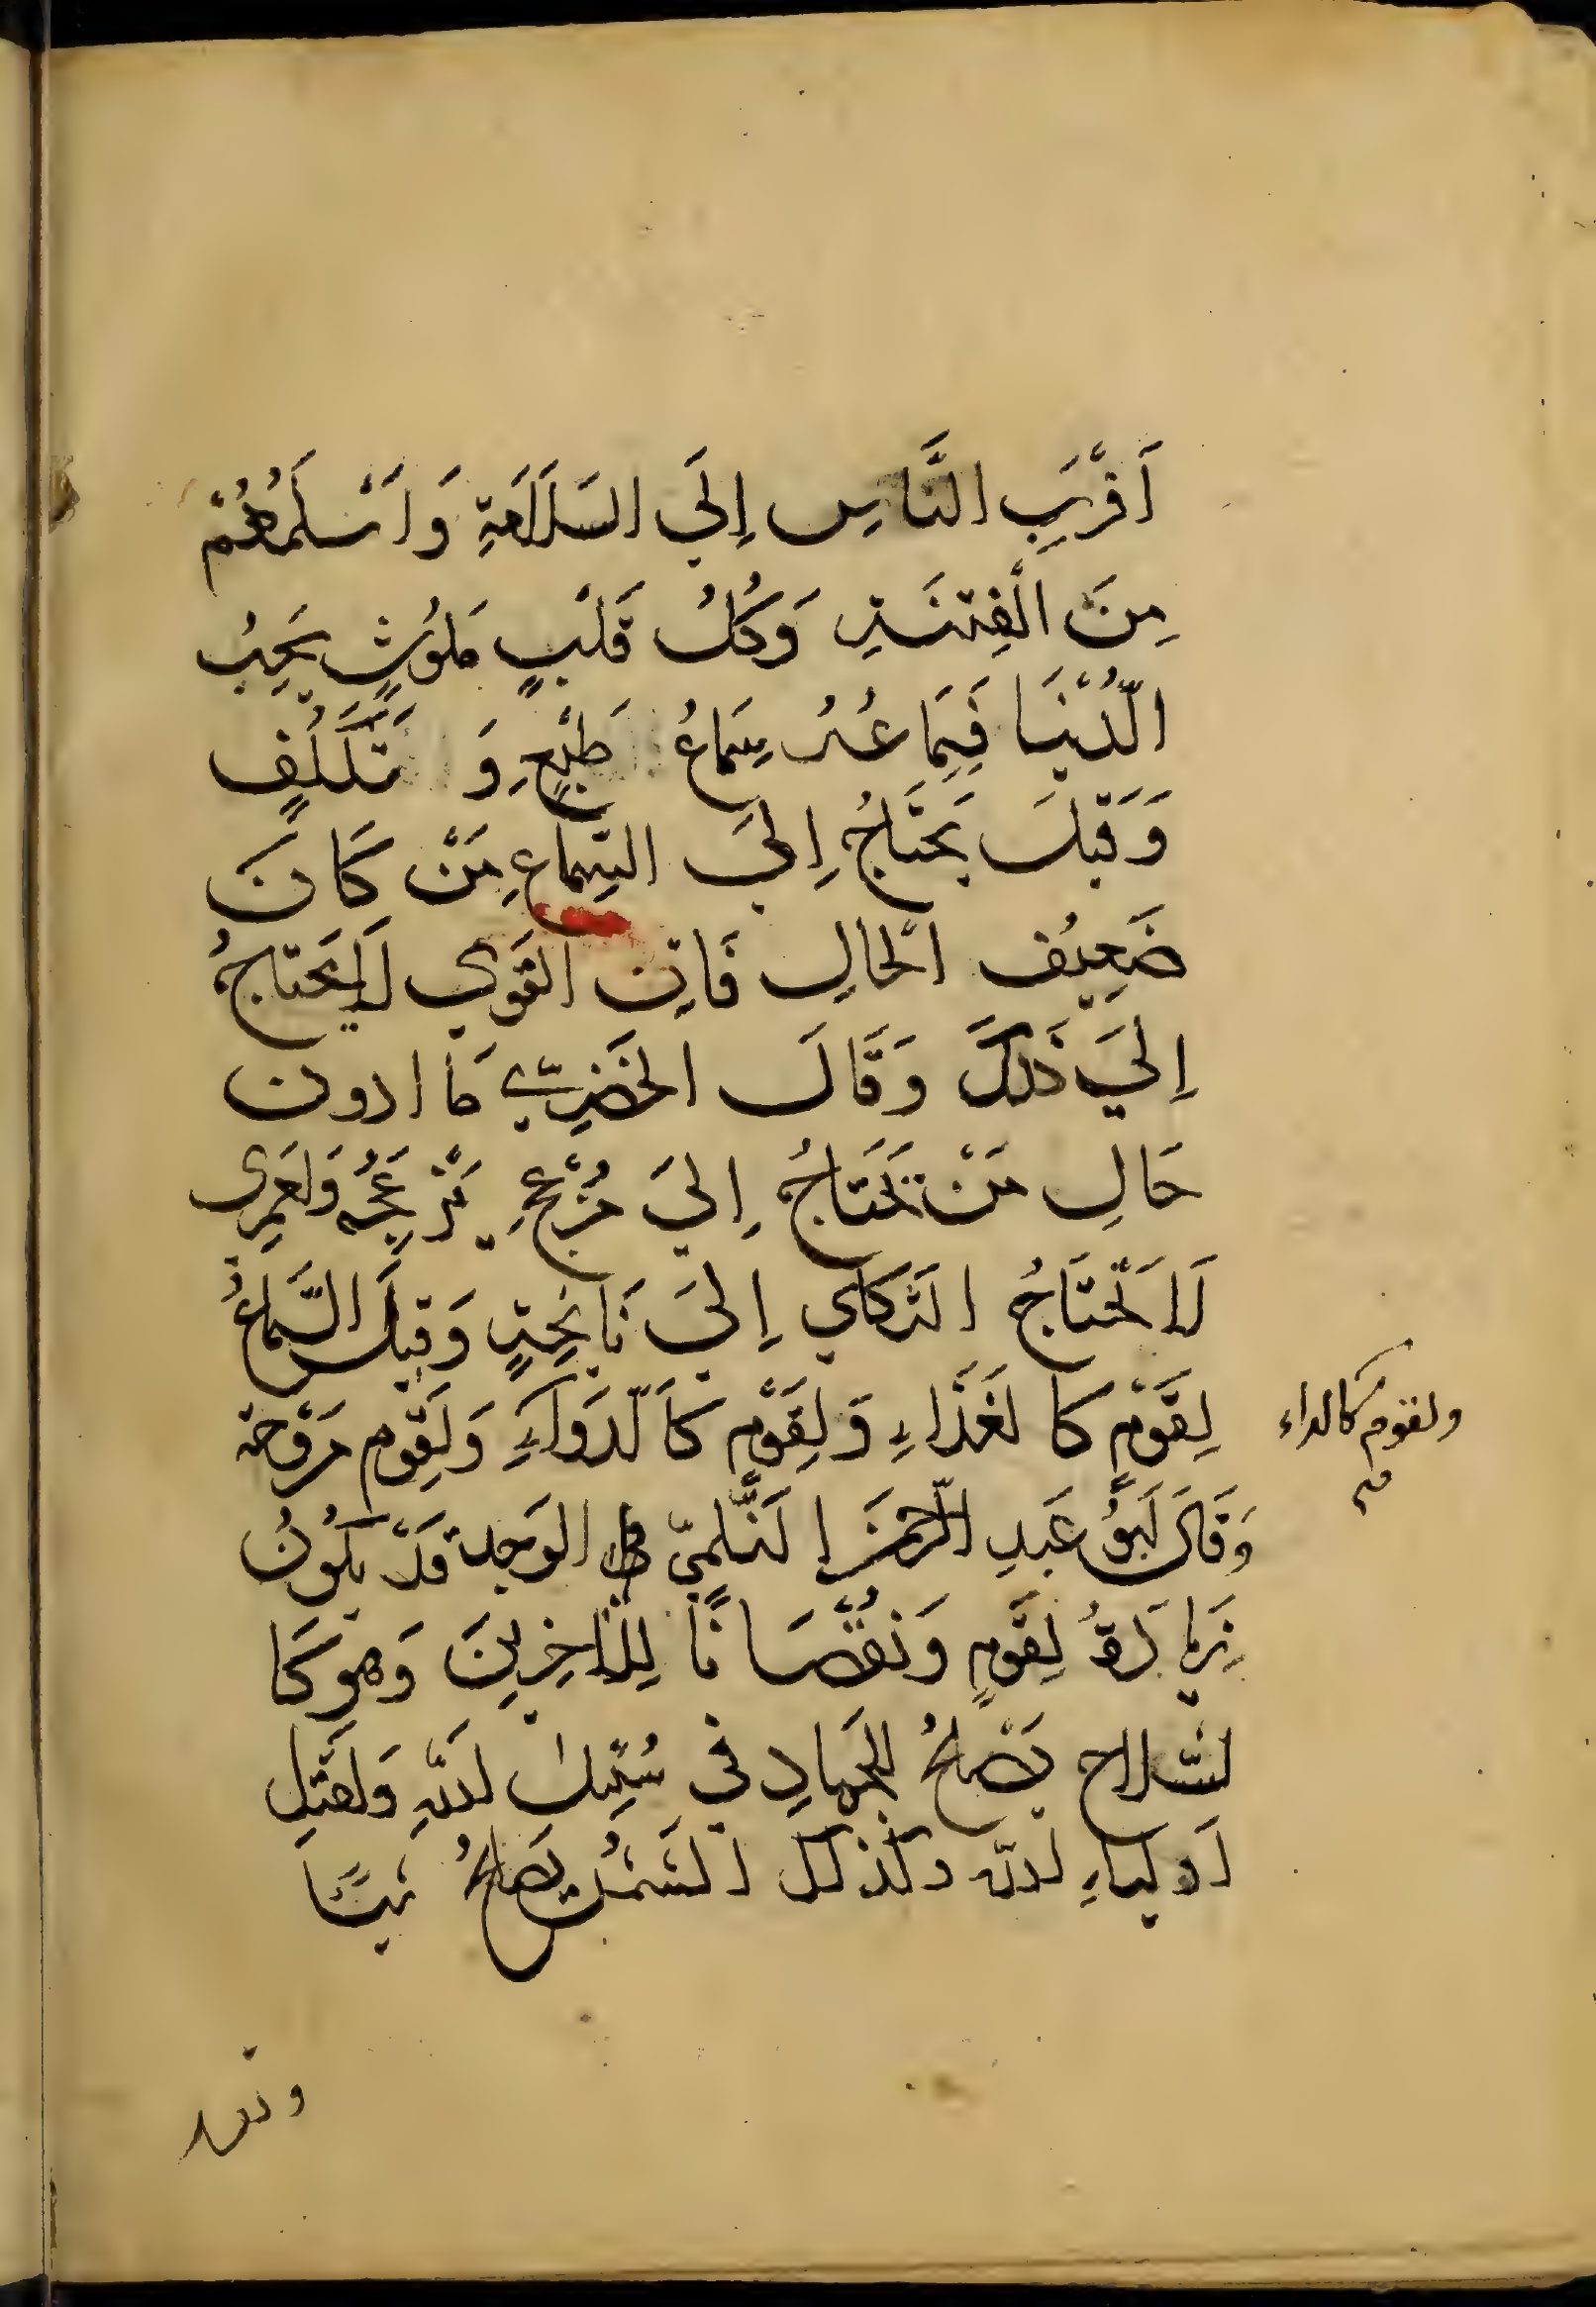 اَقْرَبِ النَّاسِ إِلَي السَلَامَةِ وَاَسْلَمُهُمْ
مِنَ الْفِتنَةِ وَكُلُ قَلْبٍ مَلوُثٍ بِحُبِ
الّدُنْيَا فَسِمَاعُهُ سِمَاعُ طَبْعٍ وَ تَكَلُفٍ
وَقيِلَ يَحْتَاجُ اِلىَ السِماعِ مَنْ كَانَ
ضَعِيُف الْحَالِ فَاِن القَوِي لَا يَحتاجُ
اِلىَ ذَلكَ وَقَالَ الحَضِريّ مَا ادون
حَالِ مَنْ يَحَتَاجُ اِلىَ مُزْعِجٍ يُزْعِجُه وَلعَمِرى
لَا تَحْتَاجُ الثَكلَي اِلىَ نَايحِةٍ وَقيِلَ السَّمَاعُ
لِقَوْمٍ كا لغَذَاءِ وَلِقَوْمٍ كاَلّدَواَءِ وَلَقِوم مَرْوَحة
ولقوم كالداء
صح
وَقَالَ اَبوُ عَبدِ الرَّحمَن السُّلَميّ الوَجد قَدْ يكُوُنُ
زِيَادَةُ لِقَومٍ وَنقُصَانًا لِلاخَرِينَ وَهو كَا
لسّلاح يَصْلحُ للجَهادِ في سَبيلِ اللهِ وَلقَتلِ
اَولياءِ الله وكذلك الشَمْسُ يَصلحُ شيئًا